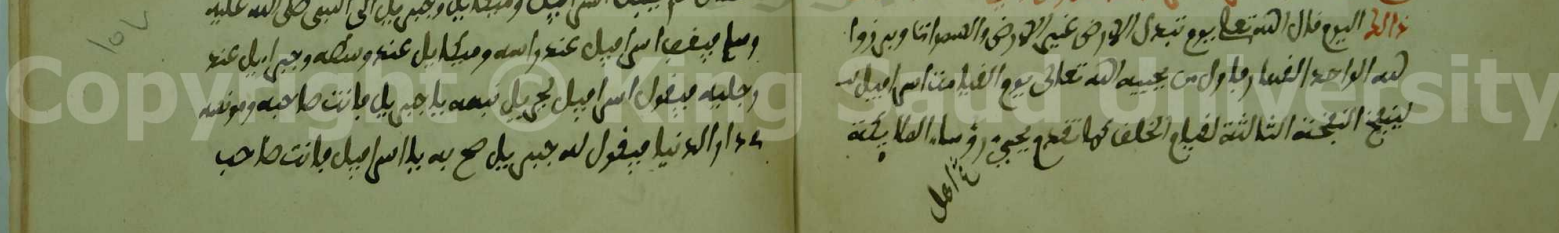 ذالك اليوم قال الله تعلى يوم تبدل الارض غير الارض والسموات وبرزوا
لله الواحد القهار واول من يحييه الله تعالى يوم القيامت اسرافيل
لينفخ النفخة الثالثة لقيام الخلف كما تقدم ويحيى رؤساء الملايكة
ثم اهل
اسرافيل وميكاييل وجبريل الى النبي صلى الله عليه
وسلم فيقف اسرافيل عند راسه وميكايل عند وسطه وجبرايل عند
رجليه فيقول اسرافيل لجبريل نبهه يا جبريل فانت صاحبه ومونسه
دار الدنيا فيقول له جبريل صح به يا اسرافيل فانت صاحب
Copyright © King Saud University